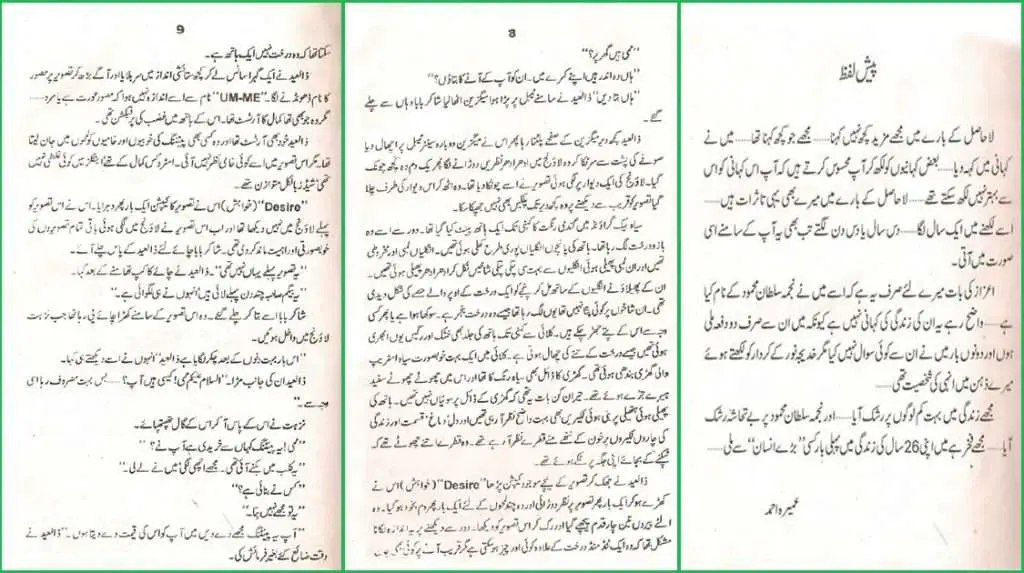 پیش لفظ
لاحاصل کے بارے میں مجھے مزید کچھ نہیں کہنا..... مجھے جو کچھ کہنا تھا..... میں نے
کہانی میں کہہ دیا..... بعض کہانیوں کو لکھ کر آپ محسوس کرتے ہیں کہ آپ اس کہانی کو اس
سے بہتر نہیں لکھ سکتے تھے..... لاحاصل کے بارے میں میرے بھی یہی تاثرات ہیں.....
اسے لکھنے میں ایک سال لگا..... دس سال یا دس دن لگتے تب بھی یہ آپ کے سامنے اسی
صورت میں آتی۔
اعزاز کی بات میرے لئے صرف یہ ہے کہ اسے میں نے نجمہ سلطان محمود کے نام کیا
ہے..... واضح رہے یہ ان کی زندگی کی کہانی نہیں ہے کیونکہ میں ان سے صرف دو دفعہ ملی
ہوں اور دونوں بار میں نے ان سے کوئی سوال نہیں کیا مگر خدیجہ نور کے کردار کو لکھتے ہوئے
میرے ذہن میں انہی کی شخصیت تھی.....
مجھے زندگی میں بہت کم لوگوں پر رشک آیا..... اور نجمہ سلطان محمود پر بے تحاشہ رشک
آیا..... مجھے فخر ہے میں اپنی 26 سال کی زندگی میں پہلی بار کسی "بڑے انسان" سے ملی.....
عمیرہ احمد
8
"ممی ہیں گھر پر؟"
"ہاں وہ اندر ہیں اپنے کمرے میں۔ ان کو آپ کے آنے کا بتاؤں؟"
"ہاں بتا دیں" ذالعید نے سامنے ٹیبل پر پڑا ہوا میگزین اٹھا لیا شاکر بابا وہاں سے چلے
گئے۔
ذالعید کچھ دیر میگزین کے صفحے پلٹتا رہا پھر اس نے میگزین دوبارہ سینٹر ٹیبل پر اچھال دیا
صوفے کی پشت سے سر ٹکا کر وہ لاؤنج میں ادھر ادھر نظریں دوڑانے لگا پھر یک دم وہ کچھ چونک
گیا۔ لاؤنج کی ایک دیوار پر لگی ہوئی تصویر نے اسے چونکا دیا تھا۔ وہ اٹھ کر اس دیوار کی طرف چلا
گیا تصویر کو قریب سے دیکھنے پر وہ کچھ دیر تک پلکیں بھی نہیں جھپکا سکا۔
سیاہ بیک گراؤنڈ میں گندمی رنگت کا کہنی تک ایک ہاتھ پینٹ کیا گیا تھا۔ دور سے اسے وہ
بازو درخت لگ رہا تھا۔ ہاتھ کی پانچوں انگلیاں پوری طرح کھلی ہوئی تھیں۔ انگلیاں لمبی اور مخروطی
تھیں اور ان لمبی پھیلی ہوئی انگلیوں سے بہت سی پتلی پتلی شاخیں نکل کر ادھر ادھر پھیلی ہوئی تھیں۔
ان کے پھیلاؤ نے انگلیوں کے ساتھ مل کر پنجے کو ایک درخت کے اوپر والے حصے کی شکل دیدی
تھی۔ ان شاخوں پر کوئی پتا نہیں تھا یوں لگ رہا تھا جیسے وہ درخت بنجر ہے۔ سوکھا ہوا ہے یا پھر کسی
وجہ سے اس کے پتے جھڑ چکے ہیں۔ کلائی سے کہنی تک ہاتھ کی جلد بھی خشک اور رگیں یوں ابھری
ہوئی تھیں جیسے درخت کے تنے کی چھال ہوتی ہے۔ کلائی میں ایک بہت خوبصورت سیاہ اسٹریپ
والی گھڑی بندھی ہوئی تھی۔ گھڑی کا ڈائل بھی سیاہ رنگ کا تھا اور اس میں چھوٹے چھوٹے سفید
ہیرے جڑے ہوئے تھے۔ حیران کن بات یہ تھی کہ گھڑی کے ڈائل پر سوئیاں نہیں تھیں۔ ہاتھ کی
پھیلی ہوئی ہتھیلی پر بنی ہوئی لکیریں بھی بہت واضح نظر آ رہی تھیں اور دل، دماغ، قسمت اور زندگی
کی چاروں لکیروں پر خون کے ننھے منے قطرے نظر آ رہے تھے۔ وہ قطرے اتنے چھوٹے تھے کہ
ٹپکنے کے بجائے اپنی جگہ پر ٹکے ہوئے تھے۔
ذالعید نے جھک کر تصویر کے نیچے موجود کیپشن پڑھا "Desire" (خواہش) اس نے
کھڑے ہو کر ایک بار پھر تصویر پر نظر دوڑائی اور وہ چند لمحوں کے لئے ایک بار پھر دم بخود ہو گیا۔ وہ
الٹے پیروں تین چار قدم پیچھے گیا اور رک کر اس تصویر کو دیکھا۔ دور سے دیکھنے پر یہ اندازہ لگانا
مشکل تھا کہ وہ ایک ٹنڈ منڈ درخت کے علاوہ کوئی اور چیز ہو سکتی ہے مگر قریب آنے پر کوئی بھی جان
9
سکتا تھا کہ وہ درخت نہیں ایک ہاتھ ہے۔
ذالعید نے ایک گہرا سانس لے کر کچھ ستائشی انداز میں سر ہلایا اور آگے بڑھ کر تصویر پر مصور
کا نام ڈھونڈنے لگا۔ "UM-ME" نام سے اسے اندازہ نہیں ہوا کہ مصور عورت ہے یا مرد.....
مگر وہ جو بھی تھا کمال کا آرٹسٹ تھا۔ اس کے ہاتھ میں غضب کی پرفیکشن تھی۔
ذالعید خود بھی آرٹسٹ تھا اور وہ کسی بھی پینٹنگ کی خوبیوں اور خامیوں کو لمحوں میں جان لیتا
تھا۔ مگر اس تصویر میں اسے کوئی خامی نظر نہیں آئی۔ اسٹروکس کمال کے تھے اینگلز میں کوئی غلطی نہیں
تھی، شیڈز بالکل متوازن تھے۔
"Desire" (خواہش) اس نے تصویر کا کیپشن ایک بار پھر دہرایا۔ اس نے اس تصویر کو
پہلے لاؤنج میں نہیں دیکھا تھا اور اب اس تصویر نے لاؤنج میں لگی ہوئی باقی تمام تصویروں کی
خوبصورتی اور اہمیت ماند کر دی تھی۔ شاکر بابا چائے لئے ذالعید کے پاس چلے آئے۔
"یہ تصویر پہلے یہاں نہیں تھی" ۔ ذالعید نے چائے کا کپ تھامنے کے بعد کہا۔
"یہ بیگم صاحبہ چند دن پہلے لائی ہیں انہوں نے ہی لگوائی ہے۔"
شاکر بابا اسے بتا کر چلے گئے۔ وہ اس تصویر کے سامنے کھڑا چائے پی رہا تھا جب نزہت
لاؤنج میں داخل ہوئیں۔
"اس بار بہت دنوں کے بعد چکر لگایا ہے ذالعید" انہوں نے اسے دیکھتے ہی کہا۔
ذالعید ان کی جانب مڑا۔ "السلام علیکم ممی! کیسی ہیں آپ؟..... بس بہت مصروف رہا اسی
وجہ سے۔"
نزہت نے اس کے پاس آ کر اس کے گال تھپتھپائے۔
"ممی! یہ پینٹنگ کہاں سے خریدی ہے آپ نے؟"
"یہ کلب میں بکنے آئی تھی۔ مجھے اچھی لگی، میں نے لے لی۔"
"کس نے بنائی ہے؟"
"یہ تو مجھے نہیں پتا۔"
"آپ یہ پینٹنگ مجھے دے دیں میں آپ کو اس کی قیمت دے دیتا ہوں۔" ذالعید نے
وقت ضائع کئے بغیر فرمائش کی۔